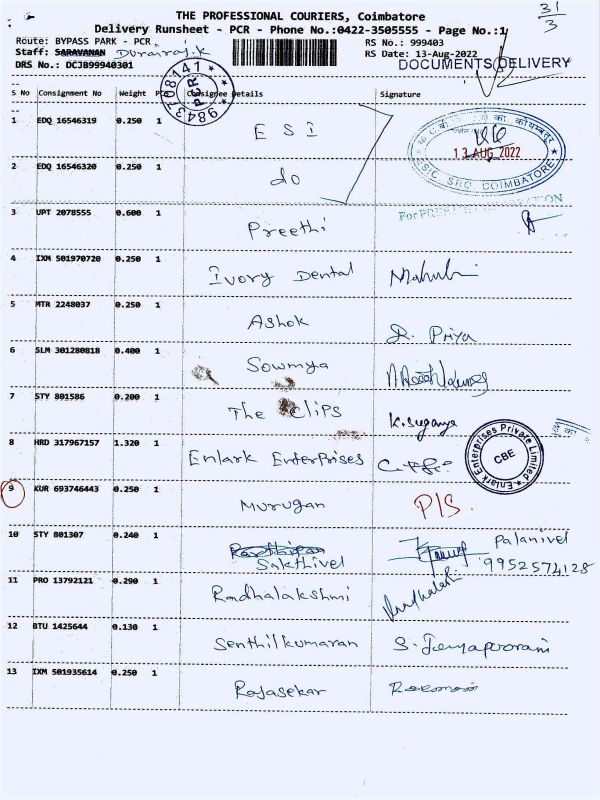 31/3
THE PROFESSIONAL COURIERS, Coimbatore
Delivery Runsheet - PCR - Phone No.:0422-3505555 - Page No.:1
Route: BYPASS PARK - PCR RS No.: 999403
Staff: SARAVANAN Durairaj.K RS Date: 13-Aug-2022
DRS No.: DCJB99940301 DOCUMENTS DELIVERY
9843708141 PCR
S No Consignment No Weight Pcs Consignee Details Signature
1 EDQ 16546319 0.250 1 ESI
13 AUG 2022
ESIC, SRO, COIMBATORE
2 EDQ 16546320 0.250 1 do
3 UPT 2078555 0.600 1 Preethi
4 IXM 501970720 0.250 1 Ivory Dental
5 MTR 2248037 0.250 1 Ashok R. Priya
6 SLM 301280818 0.400 1 Sowmya
7 STY 801586 0.200 1 The Clips K.Suganya
8 HRD 317967157 1.320 1 Enlark Enterprises
Enlark Enterprises Private Limited CBE
9 KUR 693746443 0.250 1 Murugan P/S.
10 STY 801307 0.240 1 Sakthivel Palanivel
9952574128
11 PRO 13792121 0.290 1 Radhalakshmi Radhalakshmi
12 BTU 1425644 0.130 1 Senthilkumaran
13 IXM 501935614 0.250 1 Rajasekar